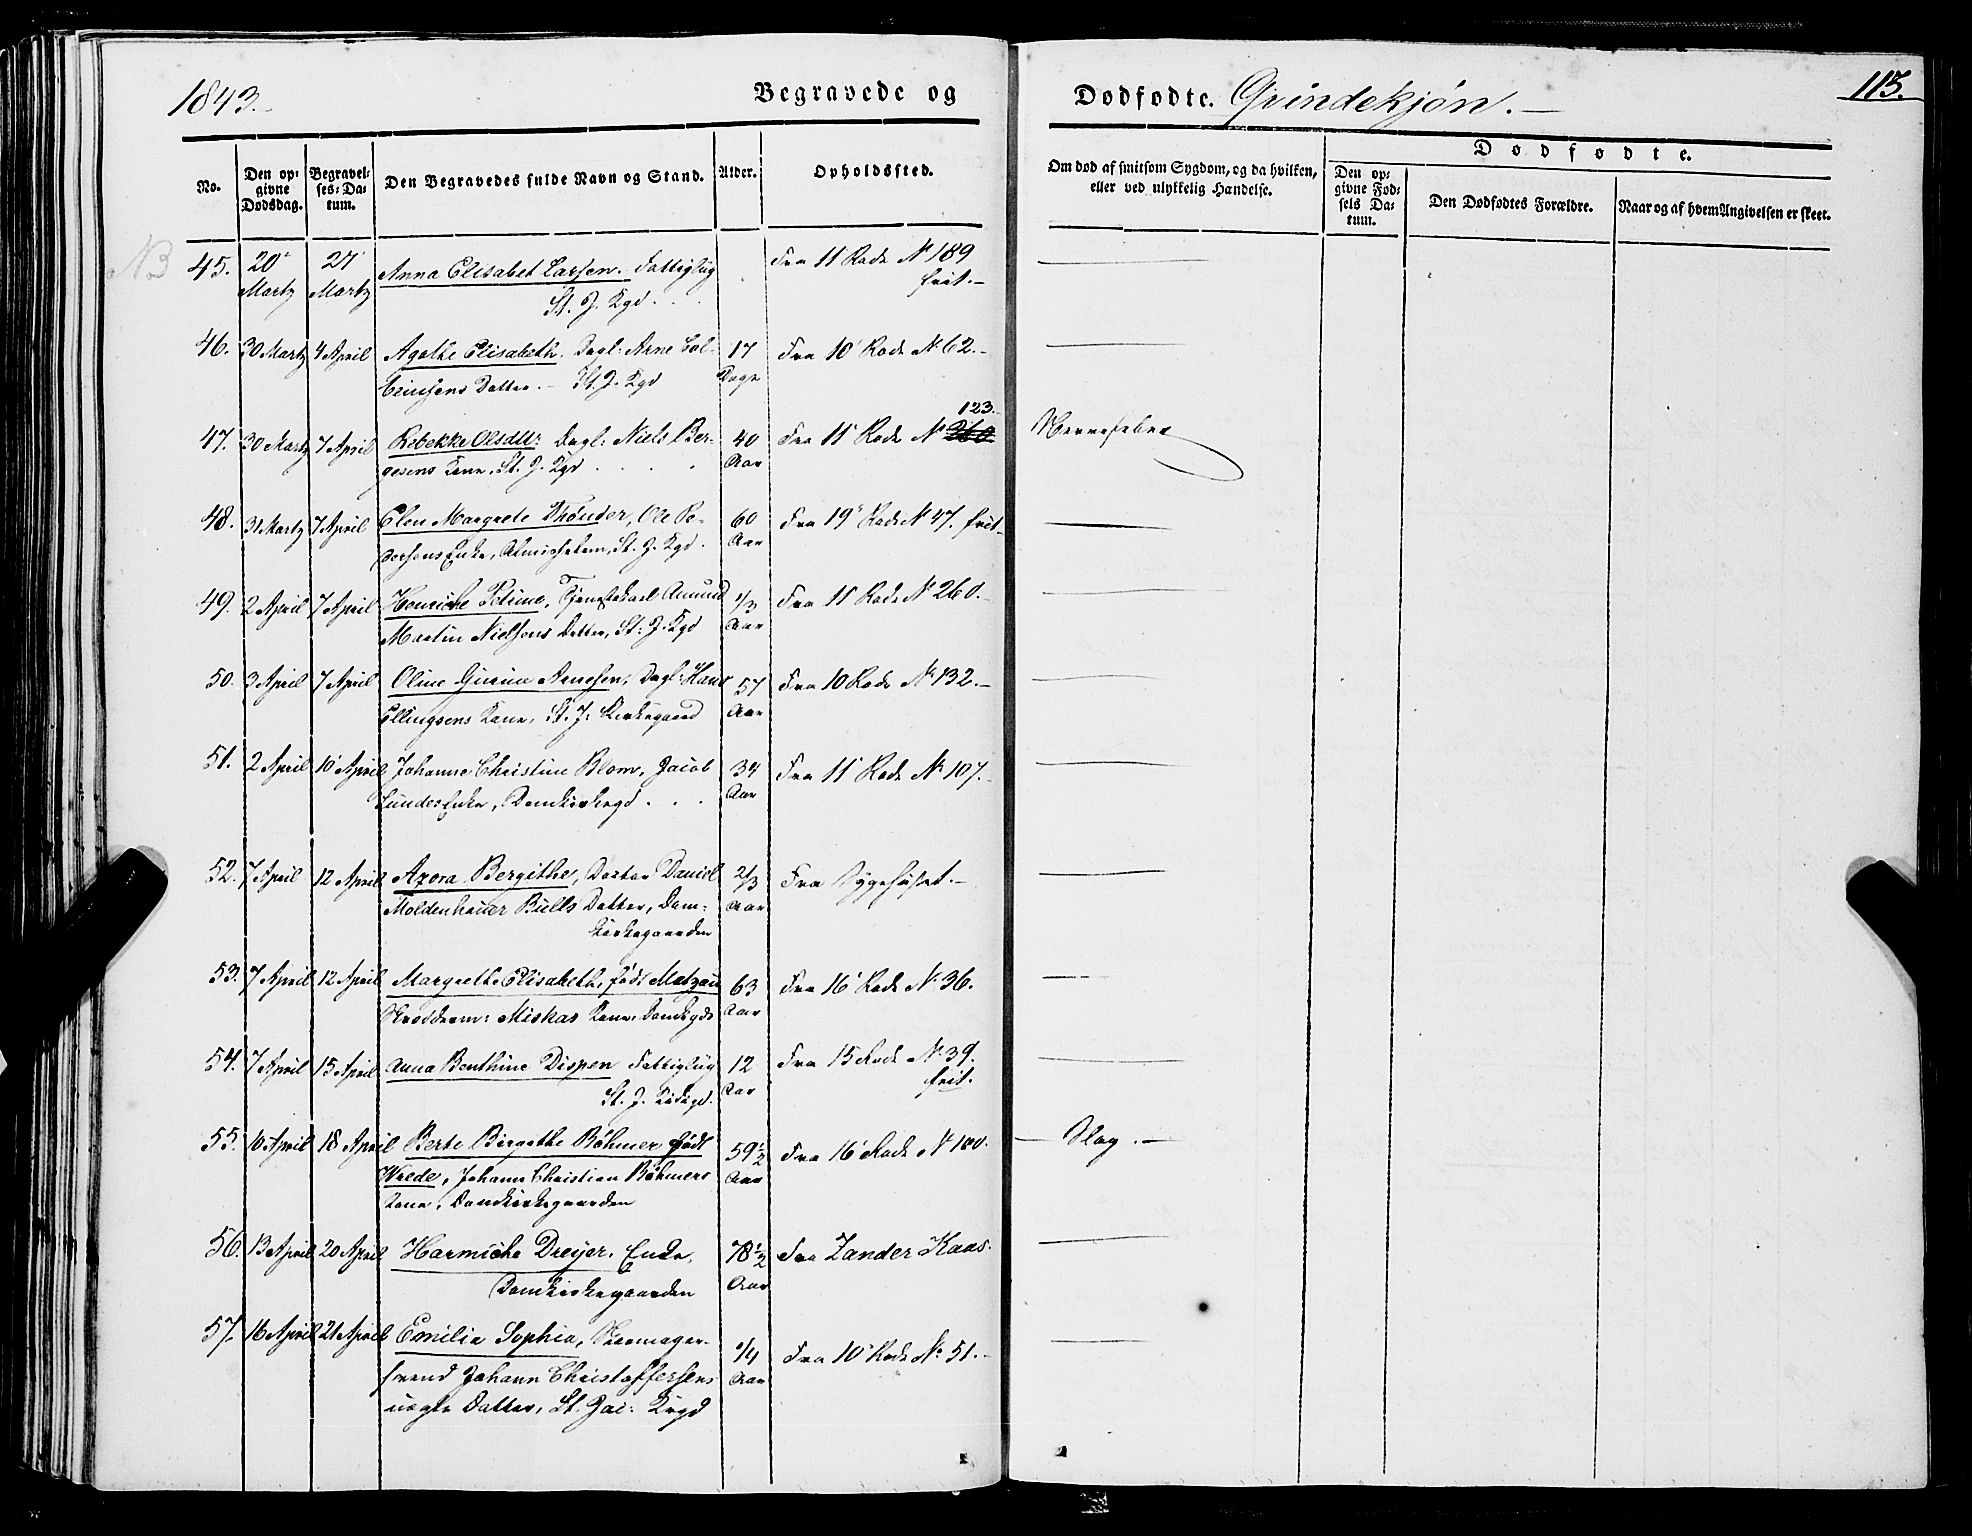 1843.-
Begravede og
Dødfødte. Qvindekjøn. -
115.
No.
Den opgivne Dødsdag.
Begravelses-Datum.
Den Begravedes fulde Navn og Stand.
Alder.
Opholdssted.
Om død af smitsom Sygdom, og da hvilken, eller ved ulykkelig Hændelse.
Dødfødte.
Den opgivne Fødsels Datum.
Den Dødfødtes Forældre.
Naar og af hvem Angivelsen er skeet.
NB 45. 20 27 Anna Elisabet Larsen. Fattiglug Fra 11 Rode No 189
Martz Martz St. J. Kgd . . . frit. -
46. 30 Martz 4 April Agathe Elisabeth. Dagl: Arne Col- 17 Fra 10 Rode No 62. -
Datter. - St. J. Kgd Dage
123. -
47. 30 Martz 7 April Rebekke Olsdtr: Dagl: Niels Ber- 40 Fra 11 Rode No 260 Nervefeber
gesens Kone, St. J. Kgd . . . . Aar
48. 31 Martz 7 April Elen Margrete Thønder, Ole Pe- 60 Fra 19 Rode No 47. frit -
dersens Enke, St. J. Kgd . Aar
49. 2 April 7 April Henriche Petine, Tjenestekarl Amund 1/3 Fra 11 Rode No 260. -
Martin Nielsens Datter, St: J. Kgd Aar
50. 3 April 7 April Oline Gurine Arnesen, Dagl: Hans 57 Fra 10 Rode No 132. -
Ellingsens Kone, St. J: Kirkegaard Aar
51. 2 April 10 April Johanne Christine Blom, Jacob 34 Fra 11 Rode No 107. -
Lundes Enke, Domkirkegd . . . Aar
52. 7 April 12 April Azora Bergithe, Doctor Daniel 2/3 Fra Sygehuset. -
Moldenhauer Bulls Datter, Dom- Aar
kirkegaarden
53. 7 April 12 April Margrethe Elisabeth, født Matzau 63 Fra 16 Rode No 36.
Skrædderm: Miskas Kone, Domkgd Aar
54. 7 April 15 April Anna Benthine Dispen Fattiglug 12 Fra 15 Rode No 39.
St. J. Kirkgd. Aar frit.
55. 10 April 18 April Berte Birgithe Böhmer født 59 1/2 Fra 16 Rode No 100. - Slag. -
Wrede, Johann Christian Böhmers Aar
Kone, Domkirkegaarden
56. 13 April 20 April Harmiche Dreyer, Enke, 78 1/2 Fra Zander Kaas.
Domkirkegaarden Aar
57. 16 April 21 April Emilia Sophia, Skomager- 1/4 Fra 10 Rode No 51. -
svend Johann Christoffersens Aar
uægte Datter, St. Jac: Krgd